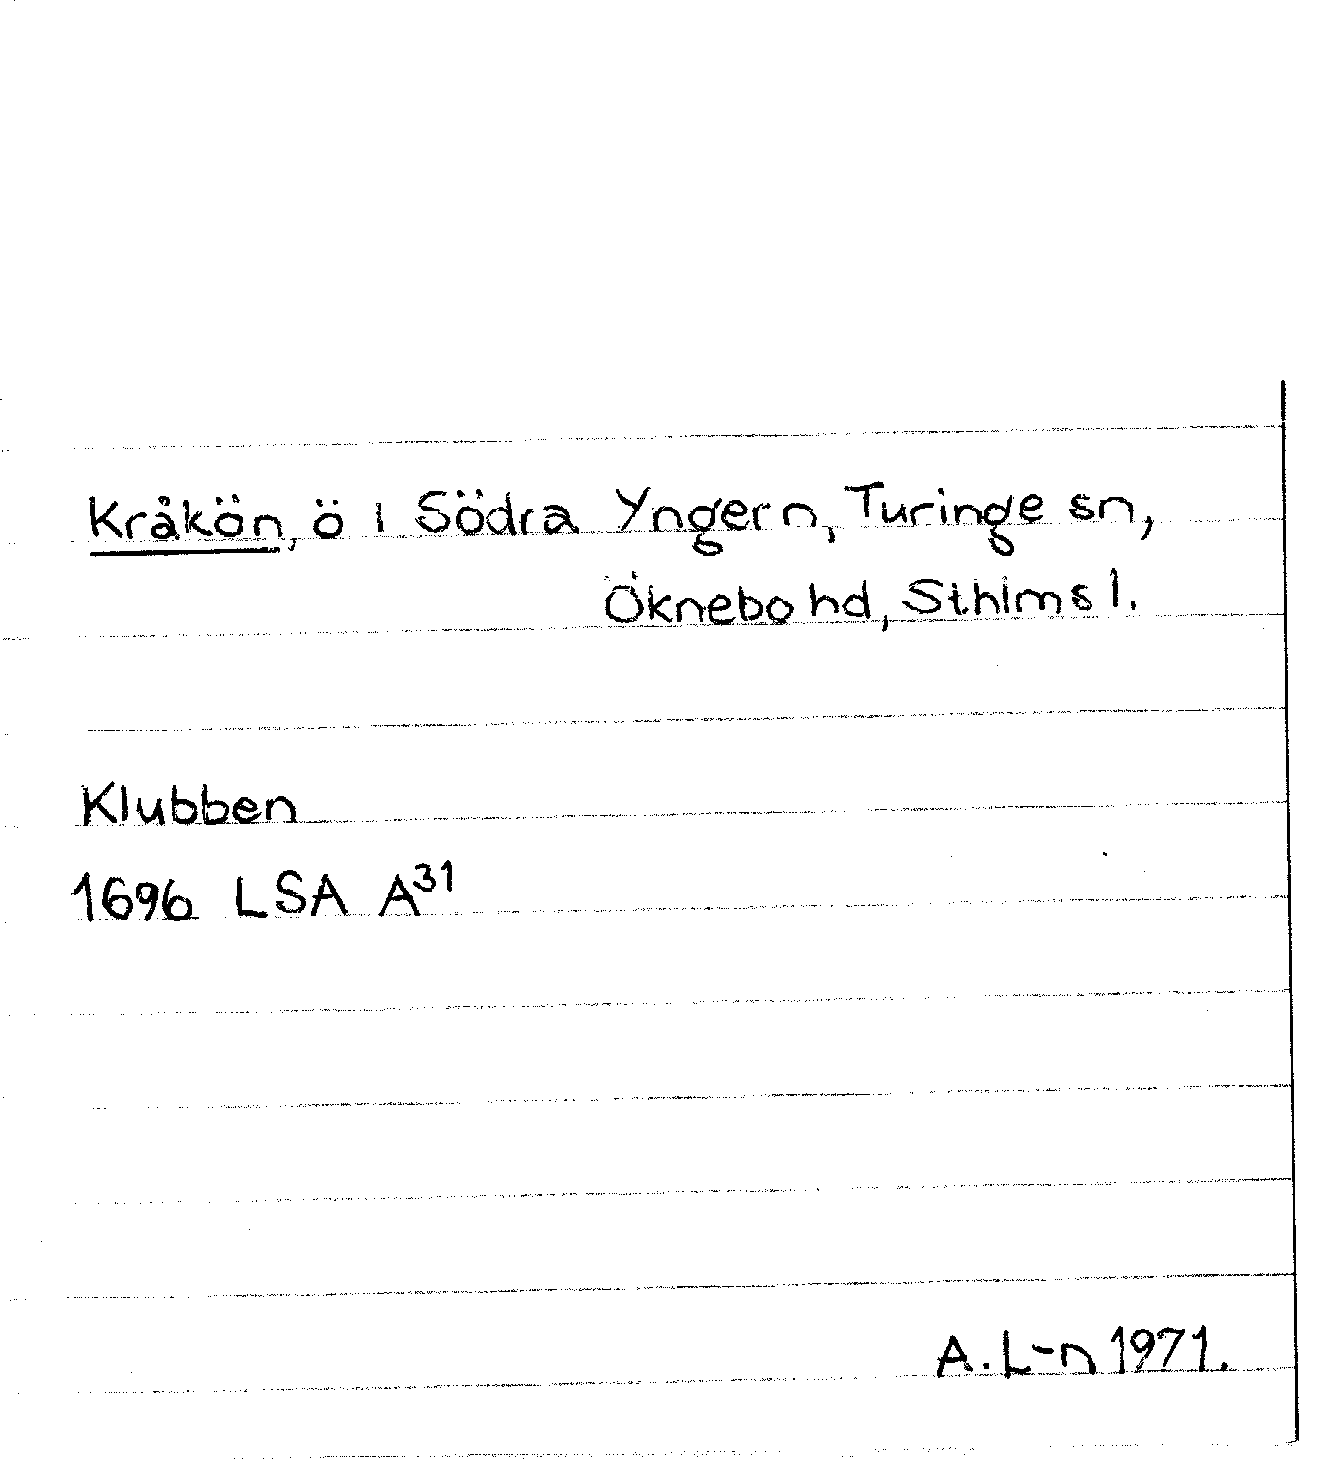 Kråkön, ö i Södra Yngern, Turinge sn,
Öknebo hd, Sthlms l.
Klubben
1696 LSA A³¹
A. L-n 1971.